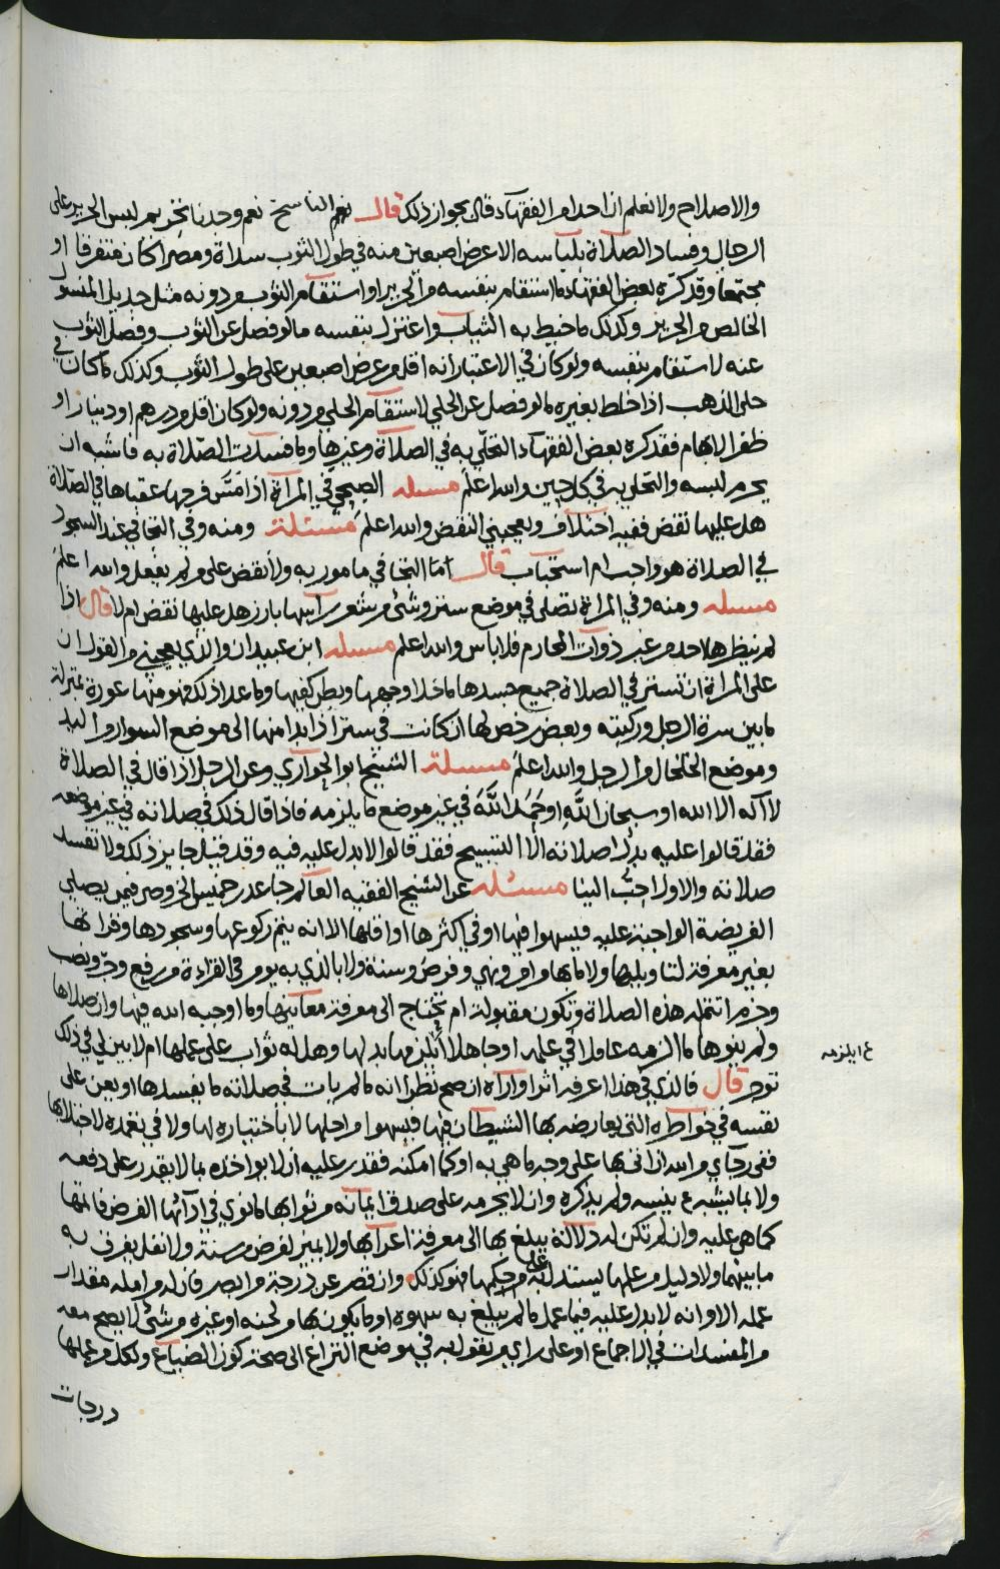 والاصلاح ولا نعلم ان احدا من الفقهاء قال بجواز ذلك قال نعم الناسخ نعم وجدنا تحريم لبس الحرير على
الرجال وفساد الصلاة بلباسه الا عرض اصبعين منه في طول الثوب سداة ومصرا كان متفرقا او
مجتمعا وقد كره بعض الفقهاء ما استقام بنفسه من الحرير او استقام الثوب من دونه مثل جديل المنسول
الخالص من الحرير وكذلك ما خيط به الثياب واعتزل بنفسه ما لو فصل عن الثوب وفصل الثوب
عنه لاستقام بنفسه ولو كان في الاعتبار انه اقل من عرض اصبعين على طول الثوب وكذلك ما كان في
حلي الذهب اذا خلط بغيره ما لو فصل عن الحلي لاستقام الحلي من دونه ولو كان اقل من درهم او دينار او
ظفر الابهام فقد كره بعض الفقهاء التحلي به في الصلاة وغيرها وما فسدت الصلاة به فاشبه ان
يحرم لبسه والتحلي به في كل حين والله اعلم مسئلة الصبحي في المرأة اذا مس فرجها عقباها في الصلاة
هل عليها نقض ففيه اختلاف ويعجبني النقض والله اعلم مسئلة ومنه وفي التجافي عند السجود
في الصلاة هو واجب ام استحباب قال اما التجافي مامور به ولا نقض على من لم يفعل والله اعلم
مسئلة ومنه وفي المراة تصلي في موضع ستر وشئ من شعر راسها بارز هل عليها نقض ام لا قال اذا
لم ينظرها احد من غير ذوات المحارم فلا باس والله اعلم مسئلة ابن عبيدان والذي يعجبني من القول ان
على المراة ان تستر في الصلاة جميع جسدها ما خلا وجهها وبطن كفيها وما عدا ذلك فهو منها عورة بمنزلة
ما بين سرة الرجل وركبته وبعض رخص لها ان كانت في ستر اذا بدا منها الى موضع السوار من اليد
وموضع الخلخال من الرجل والله اعلم مسئلة الشيخ ابو الحواري وعن الرجل اذا قال في الصلاة
لا اله الا الله او سبحان الله او حمد الله في غير موضع ما يلزمه فاذا قال ذلك في صلاته في غير موضعه
فقد قالوا عليه بدل صلاته الا التسبيح فقد قالوا لا بدل عليه فيه وقد قيل جايز ذلك ولا تفسد
صلاته والاول احب الينا مسئلة عن الشيخ الفقيه العالم جاعد بن خميس الخروصي فيمن يصلي
الفريضة الواجبة عليه فيسهوا فيها او في اكثرها او اقلها الا انه يتم ركوعها وسجودها وقراءتها
بغير معرفة لتاويلها ولا ما بها من امر ونهي وفرض وسنة ولا بالذي به يومر في القراءة من رفع وجر ونصب
وجزم اتتم له هذه الصلاة وتكون مقبولة ام يحتاج الى معرفة معانيها وما اوجبه الله فيها وان صلاها
ولم ينوها ما الزمه عاملا في علمه او جاهلا ايلزمه بدلها وهل له ثواب على عملها ام لا بين لي في ذلك
توجر قال فالذي في هذا اعرفه اثرا واراه ان صح نظرا انه ما لم يات في صلاته ما يفسدها او يعن على
نفسه في خواطره التي يعارضه بها الشيطان فيها فيسهوا من اجلها لا باختياره لها ولا في تعمده لاجتلابها
ففي رجاي من الله ان اتى بها على وجه ما هي به او كما امكنه فقدر عليه ان لا يواخذه بما لا يقدر على دفعه
ولا بما يشبه ع ينسيه ولم يذكره وان لا يحرمه على صدق ايمانه من ثوابها ما نوى في ادائها الفرض فاتمها
كما هي عليه وان لم تكن له دلالة يبلغ بها الى معرفة اعرابها ولا يميز لفرض من سنة ولا نفل يفرق به
ما بينهما ولا دليل من علمها يستند له عليه من حكمها فهو كذلك وان قصر عن درجة من ابصر فان له من امله مقدار
عمله الا وانه لا بدل عليه فيما عمل ما لم يبلغ به سهوه او ما يكون بها من لحنه او غيره من شئ لا يصح معه
من المفسدات في الاجماع او على راي من يقول به في موضع النزاع الى صحة كون الضياع ولكل من عملها
درجات
ع ايلزمه